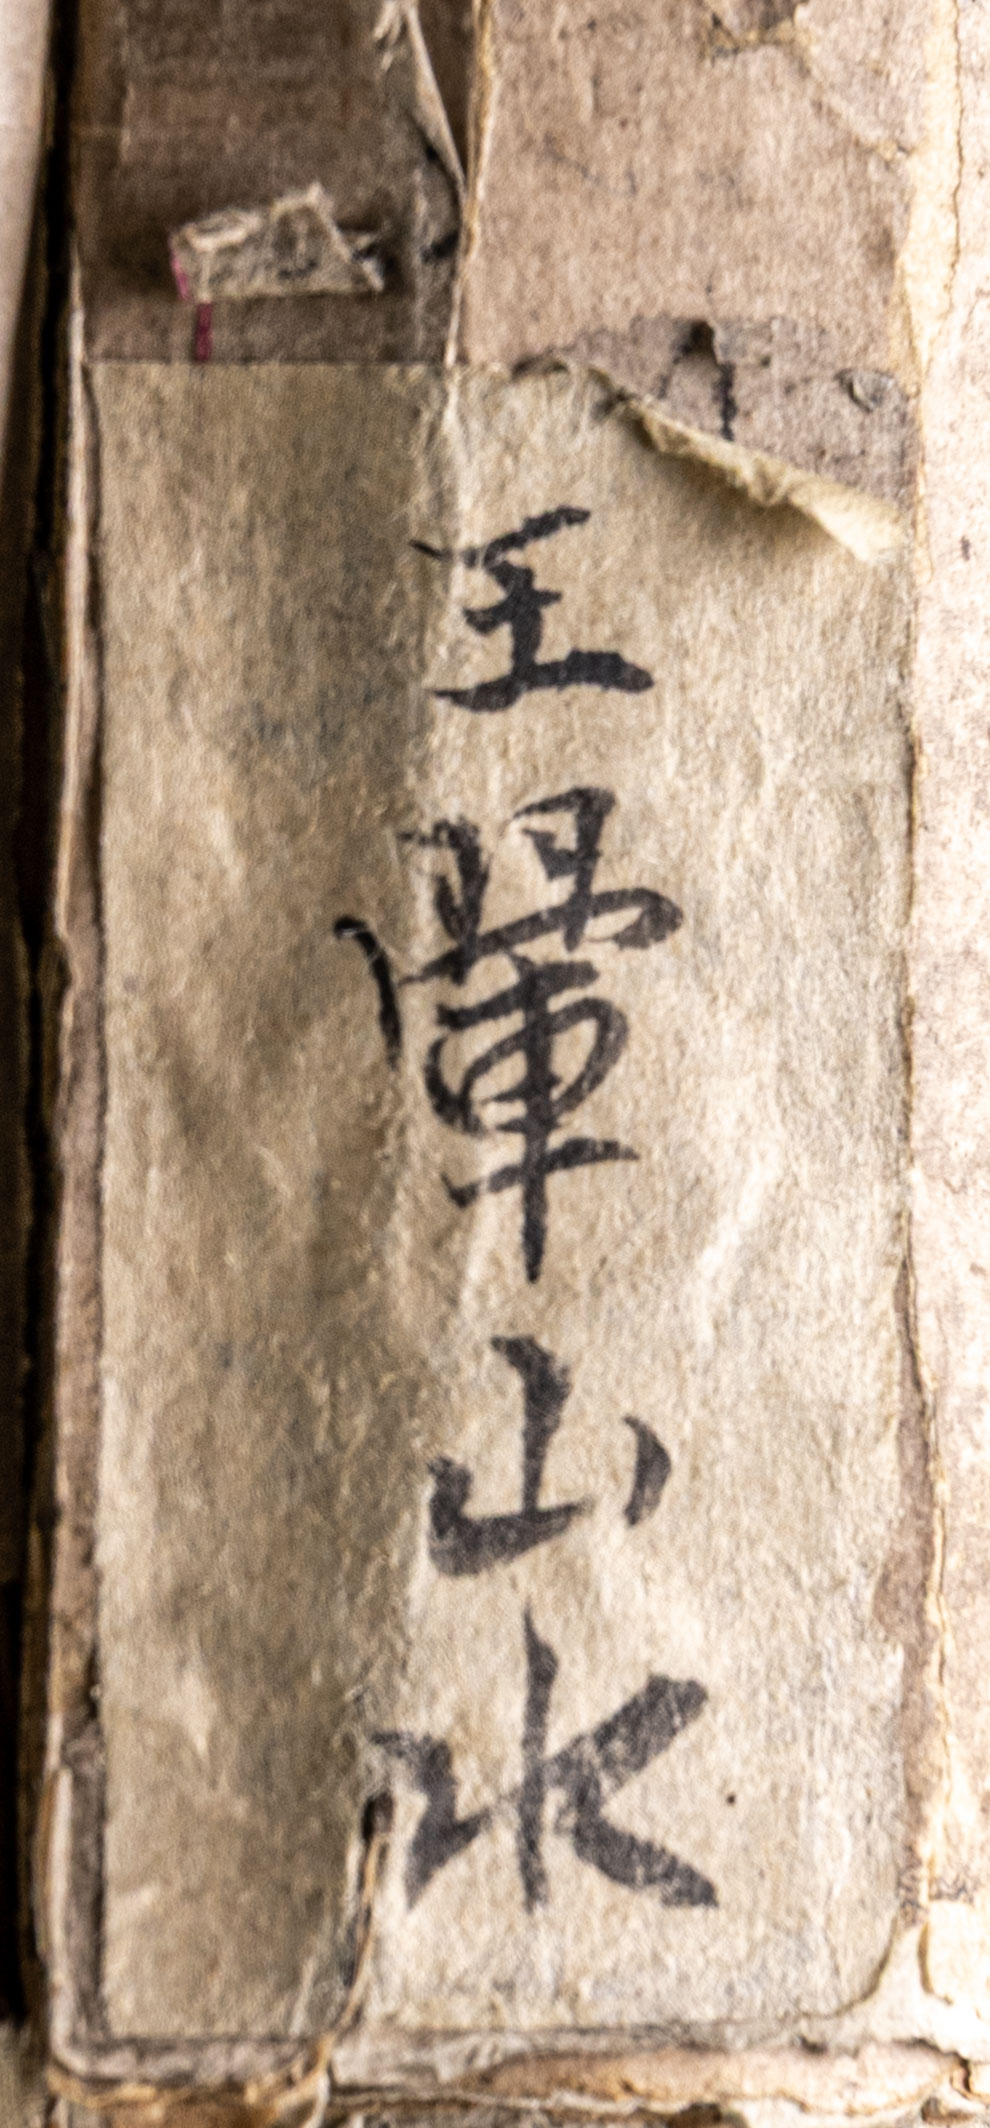 王翬山水